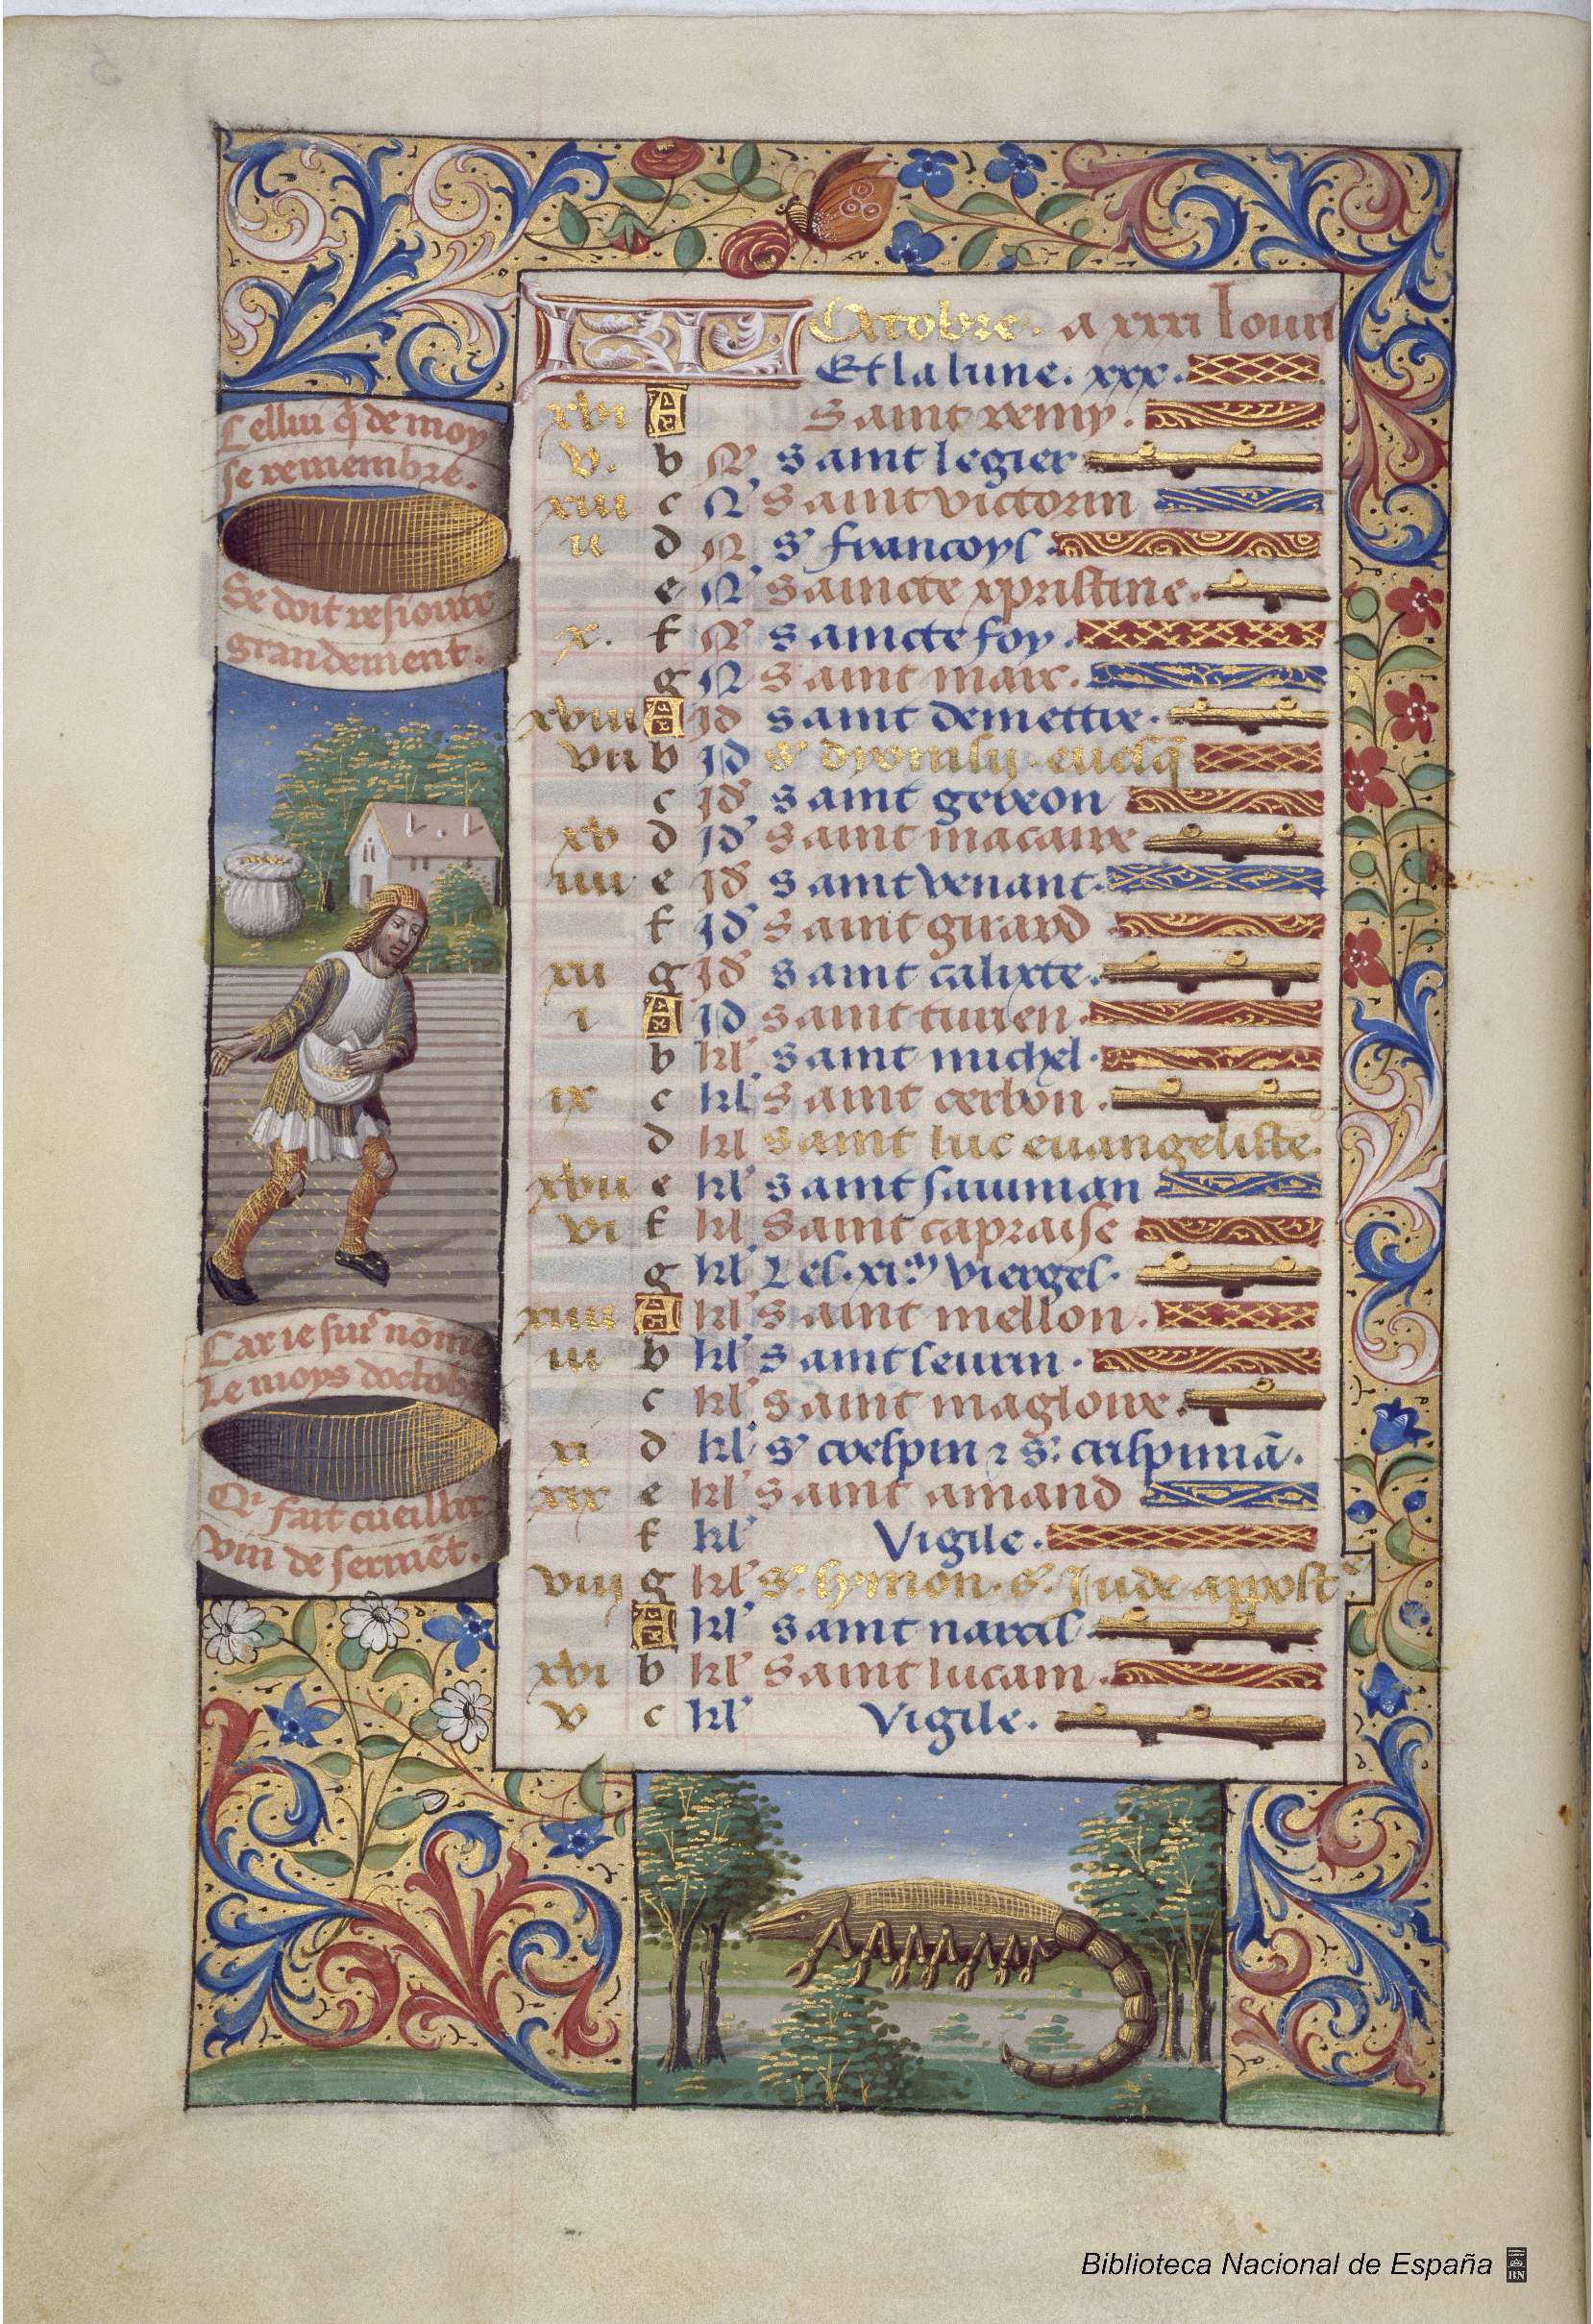 Cellui q̄ de moy
se remembre.
Se doit resiouir
grandement.
Car ie suis nōme
Le moys doctob
Qr fait cueillir
vin de sermēt.
KL Octobre. a xxxi Iours
Et la lune. xxx.
xvi A Saint remy.
v. b N Saint legier
xiii c N Saint victorin
ii d N S' francoys
e N Saincte xpristine.
x. f N Saincte foy.
g N Saint marc.
xviii A Id Saint demettre.
vii b Id euesq̄
c Id Saint gereon
xv d Id Saint macaire
iiii e Id Saint venant
f Id Saint girard
xii g Id Saint calixte.
i A Id Saint turien
b kl Saint michel
ix c kl Saint cerbon.
d kl Saint luc euangeliste.
xvii e kl Saint sauuman
vi f kl Saint capraise
g kl Les. xi.m vierges.
xiiii A kl Saint mellon.
iii b kl Saint seurin.
c kl Saint magloire.
xi d kl S' crespin ⁊ S. crispiniā.
xix e kl Saint amand
f kl Vigile.
viii g kl S. symon. S. Iude apost
A kl Saint narcis
xvi b kl Saint lucain
v c kl Vigile.
Biblioteca Nacional de España
BN